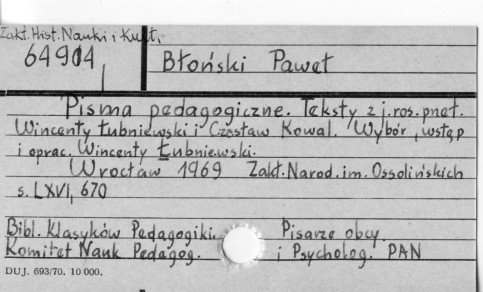 Zakł. Hist. Nauki i Kult.
64904
Błoński Paweł
Pisma pedagogiczne. Teksty z j. ros. przeł.
Wincenty Łubniewski i Czesław Kowal. Wybór, wstęp
i oprac. Wincenty Łubniewski.
Wrocław 1969 Zakł. Narod. im. Ossolińskich
s. LXVI, 670
Bibl. Klasyków Pedagogiki. Pisarze obcy.
Komitet Nauk Pedagog. i Psycholog. PAN
DUJ. 693/70. 10 000.